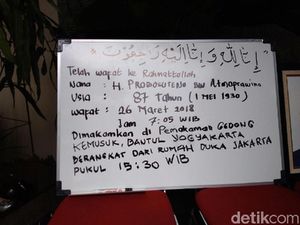 إنا لله وإنا إليه راجعون
Telah wafat ke Rahmattollah
Nama : H. PROBOSUTEDJO BIN Atmoprawiro
Usia : 87 Tahun (1 MEI 1930)
Wafat : 26 Maret 2018
Jam 7:05 WIB
Dimakamkan di Pemakaman GEDONG
KEMUSUK, BANTUL YOGYAKARTA
BERANGKAT DARI RUMAH DUKA JAKARTA
PUKUL 15:30 WIB
detikcom